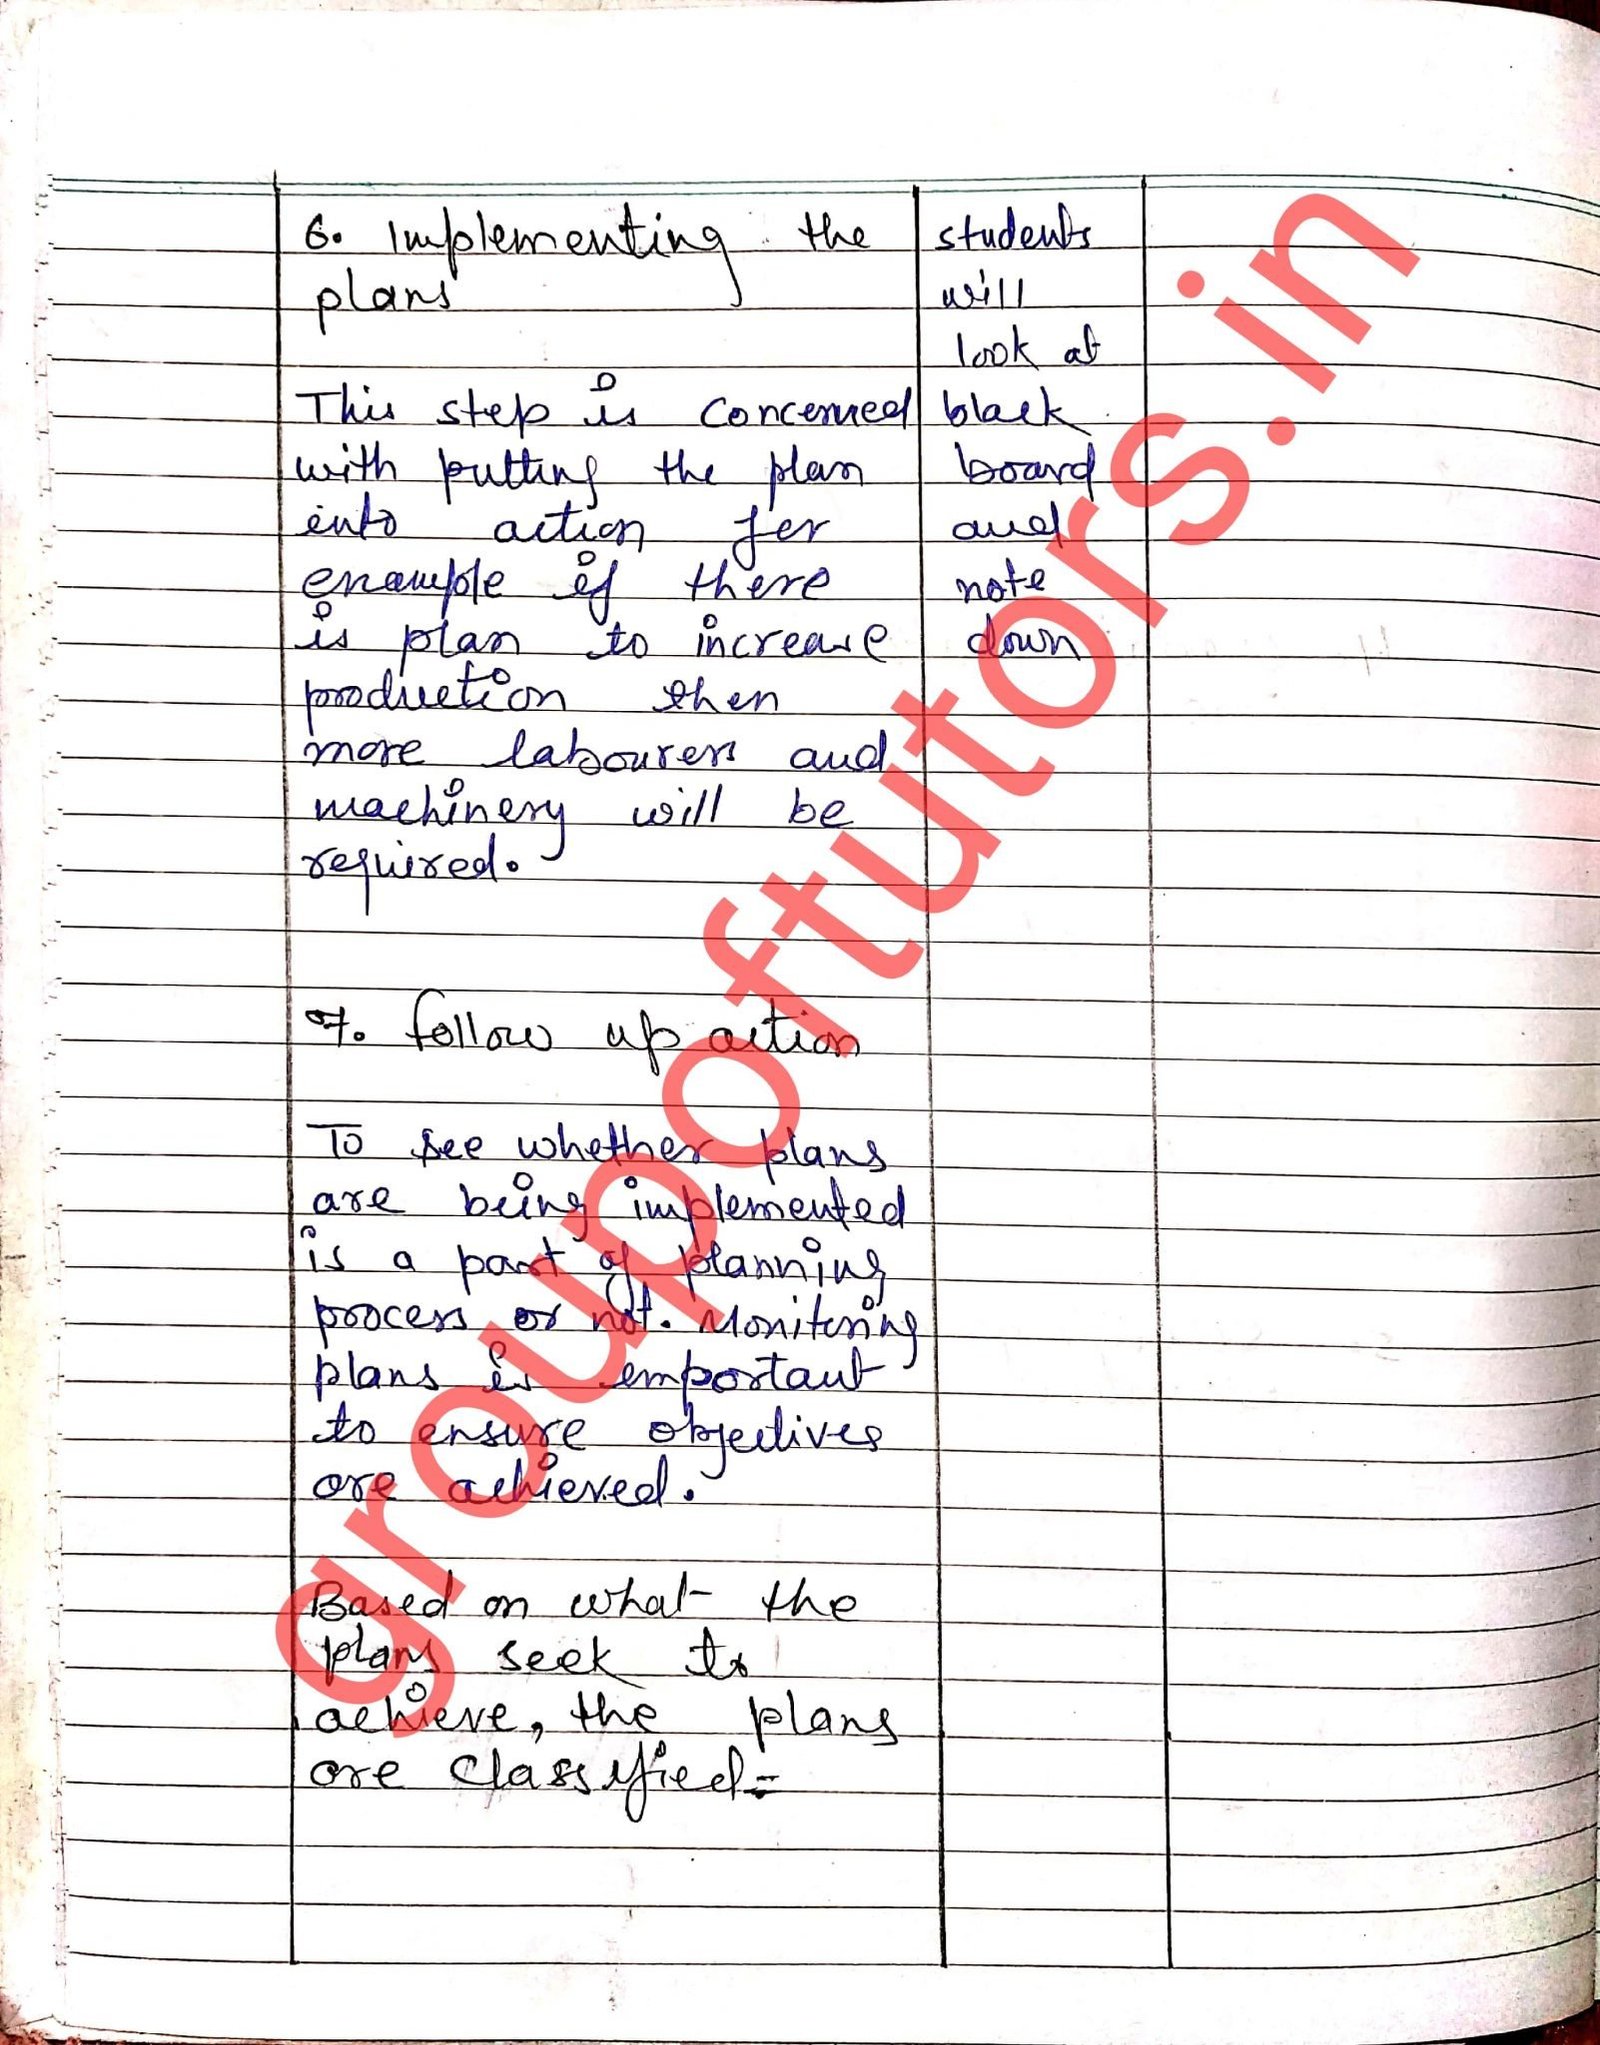 6. Implementing the
plans
This step is concerned
with putting the plan
into action for
example if there
is plan to increase
production then
more labourers and
machinery will be
required.
7. Follow up action
To see whether plans
are being implemented
is a part of planning
process or not. Monitoring
plans is important
to ensure objectives
are achieved.
Based on what the
plans seek to
achieve, the plans
are classified=
students
will
look at
black
board
and
note
down
groupoftutors.in